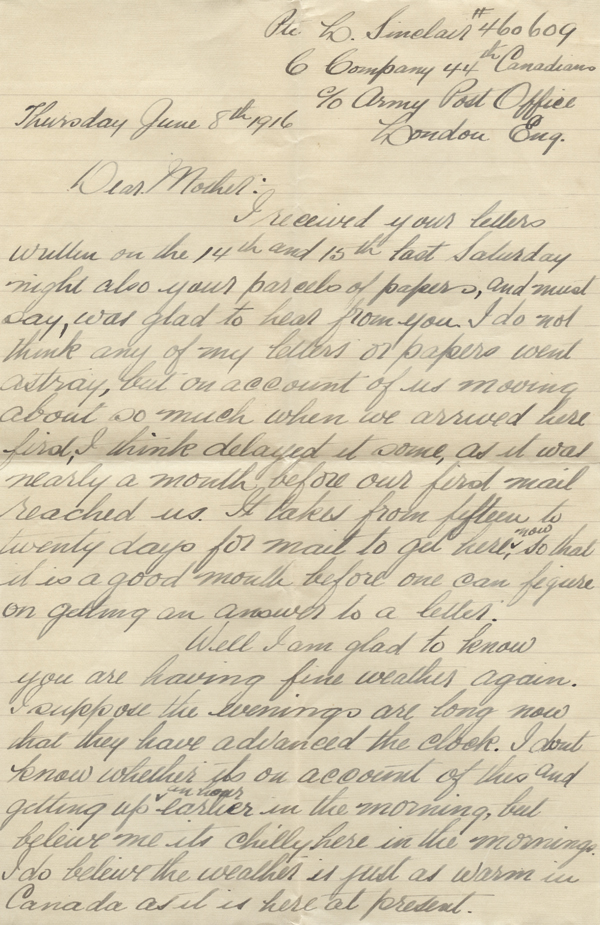 Pte. L. Sinclair #460609
C Company 44th Canadians
c/o Army Post Office
London Eng.
Thursday June 8th 1916
Dear Mother:
I received your letters
written on the 14th and 15th last Saturday
night also your parcels of papers, and must
say, was glad to hear from you. I do not
think any of my letters or papers went
astray, but on account of us moving
about so much when we arrived here
first, I think delayed it some, as it was
nearly a month before our first mail
reached us. It takes from fifteen to
twenty days for mail to get here, now so that
it is a good month before one can figure
on getting an answer to a letter.
Well I am glad to know
you are having fine weather again.
I suppose the evenings are long now
that they have advanced the clock. I dont
know whether its on account of this and
getting up an hour earlier in the morning, but
beleive me its chilly here in the mornings.
I do beleive the weather is just as warm in
Canada as it is here at present.